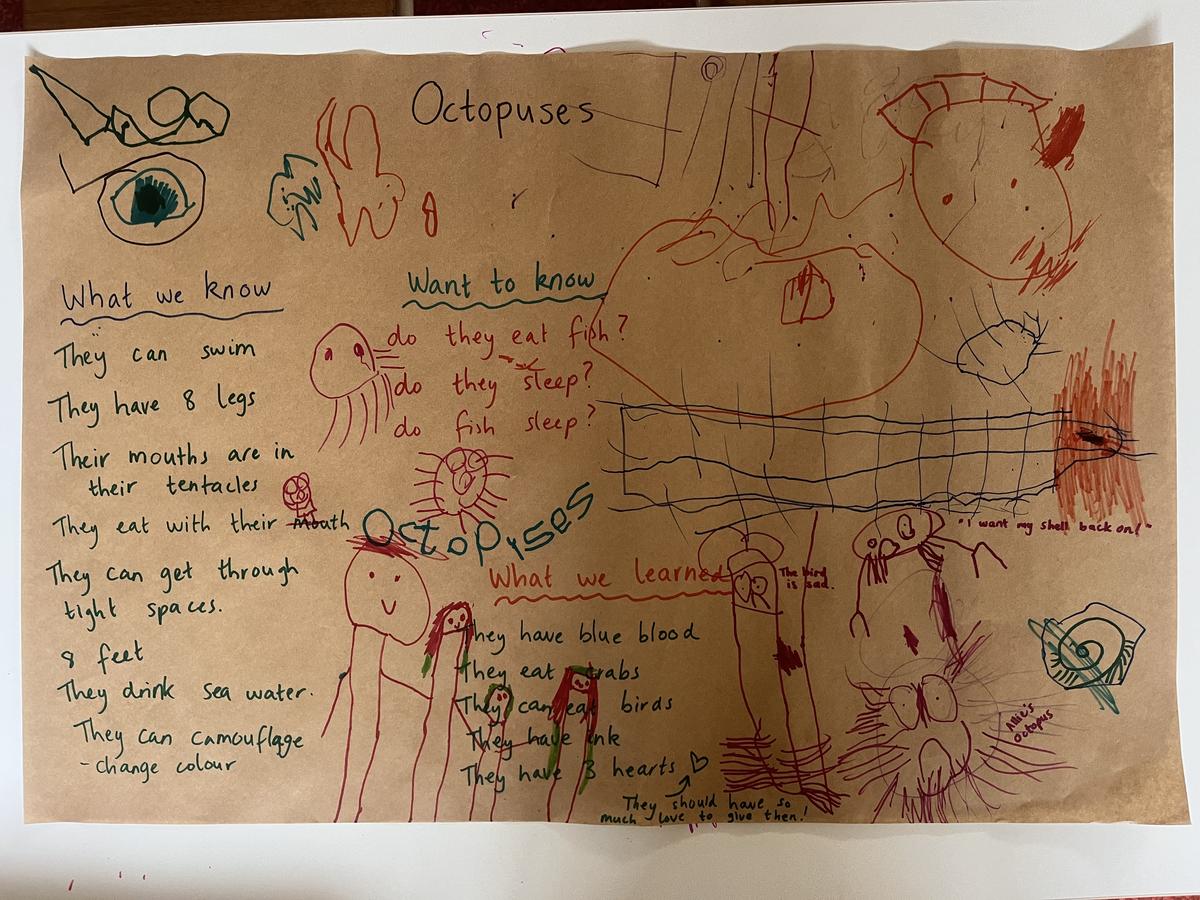 Octopuses
What we know
They can swim
They have 8 legs
Their mouths are in
their tentacles
They eat with their mouth
They can get through
tight spaces.
8 feet
They drink sea water.
They can camouflage
- change colour
Want to know
do they eat fish?
do they sleep?
do fish sleep?
Octopuses
What we learned
They have blue blood
They eat crabs
They can eat birds
They have ink
They have 3 hearts
They should have so
much love to give then!
The bird
is sad.
"I want my shell back on!"
Allie's
octopus